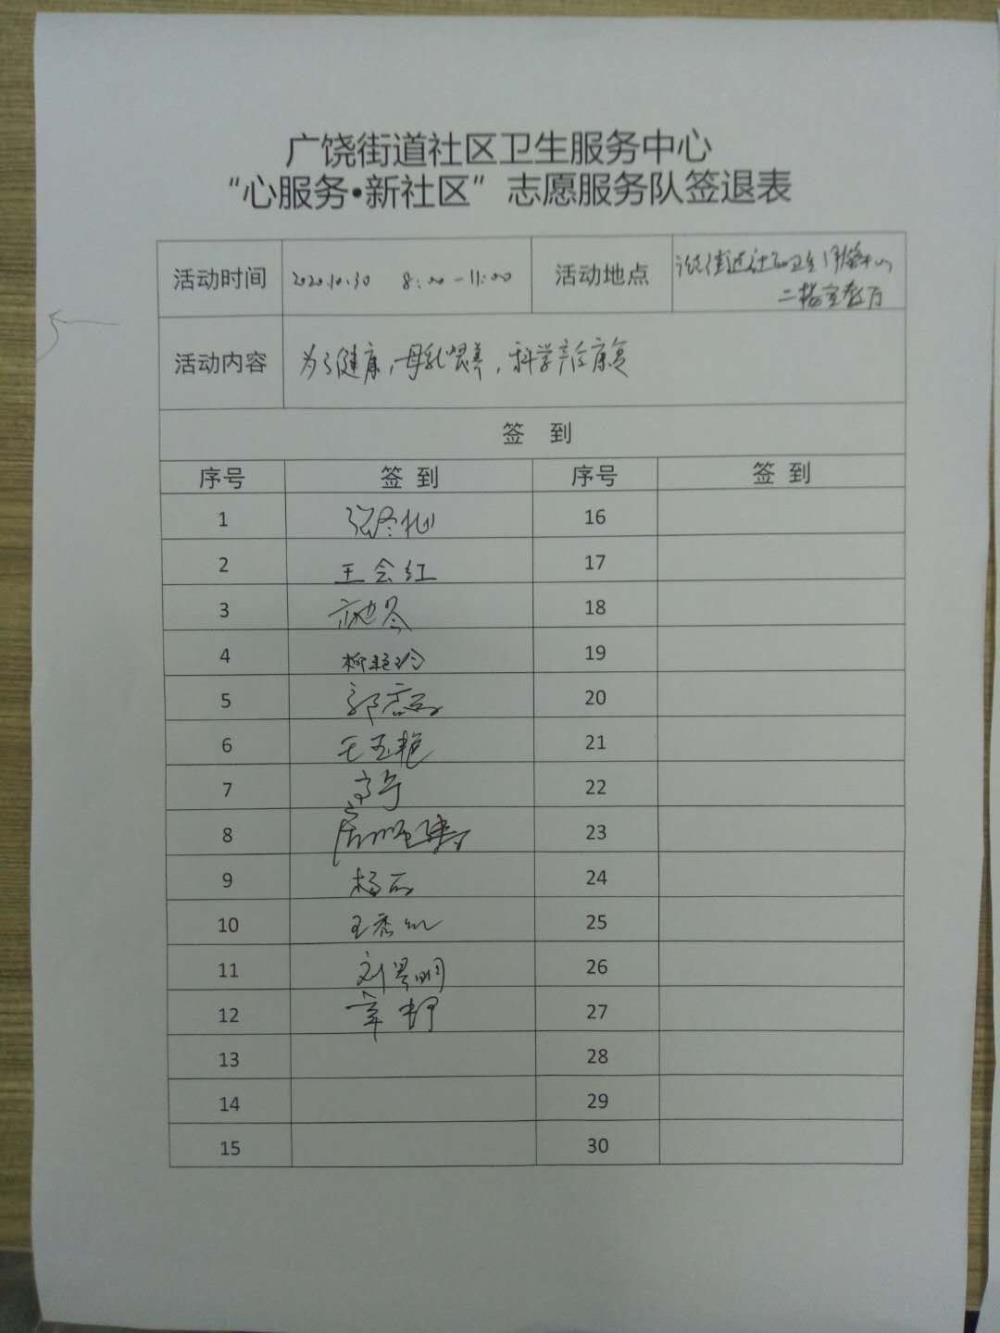 广饶街道社区卫生服务中心
“心服务•新社区”志愿服务队签退表
活动时间 2020.10.30 8:00-11:00 活动地点 街道社区卫生服务中心
二楼宣教厅
活动内容 为了健康,母乳喂养,科学产后康复
签 到
序号 签到 序号 签到
1 16
2 王会红 17
3 18
4 柳艳玲 19
5 郭 20
6 王玉艳 21
7 高宁 22
8 23
9 杨 24
10 王秀 25
11 刘景明 26
12 章 27
13 28
14 29
15 30